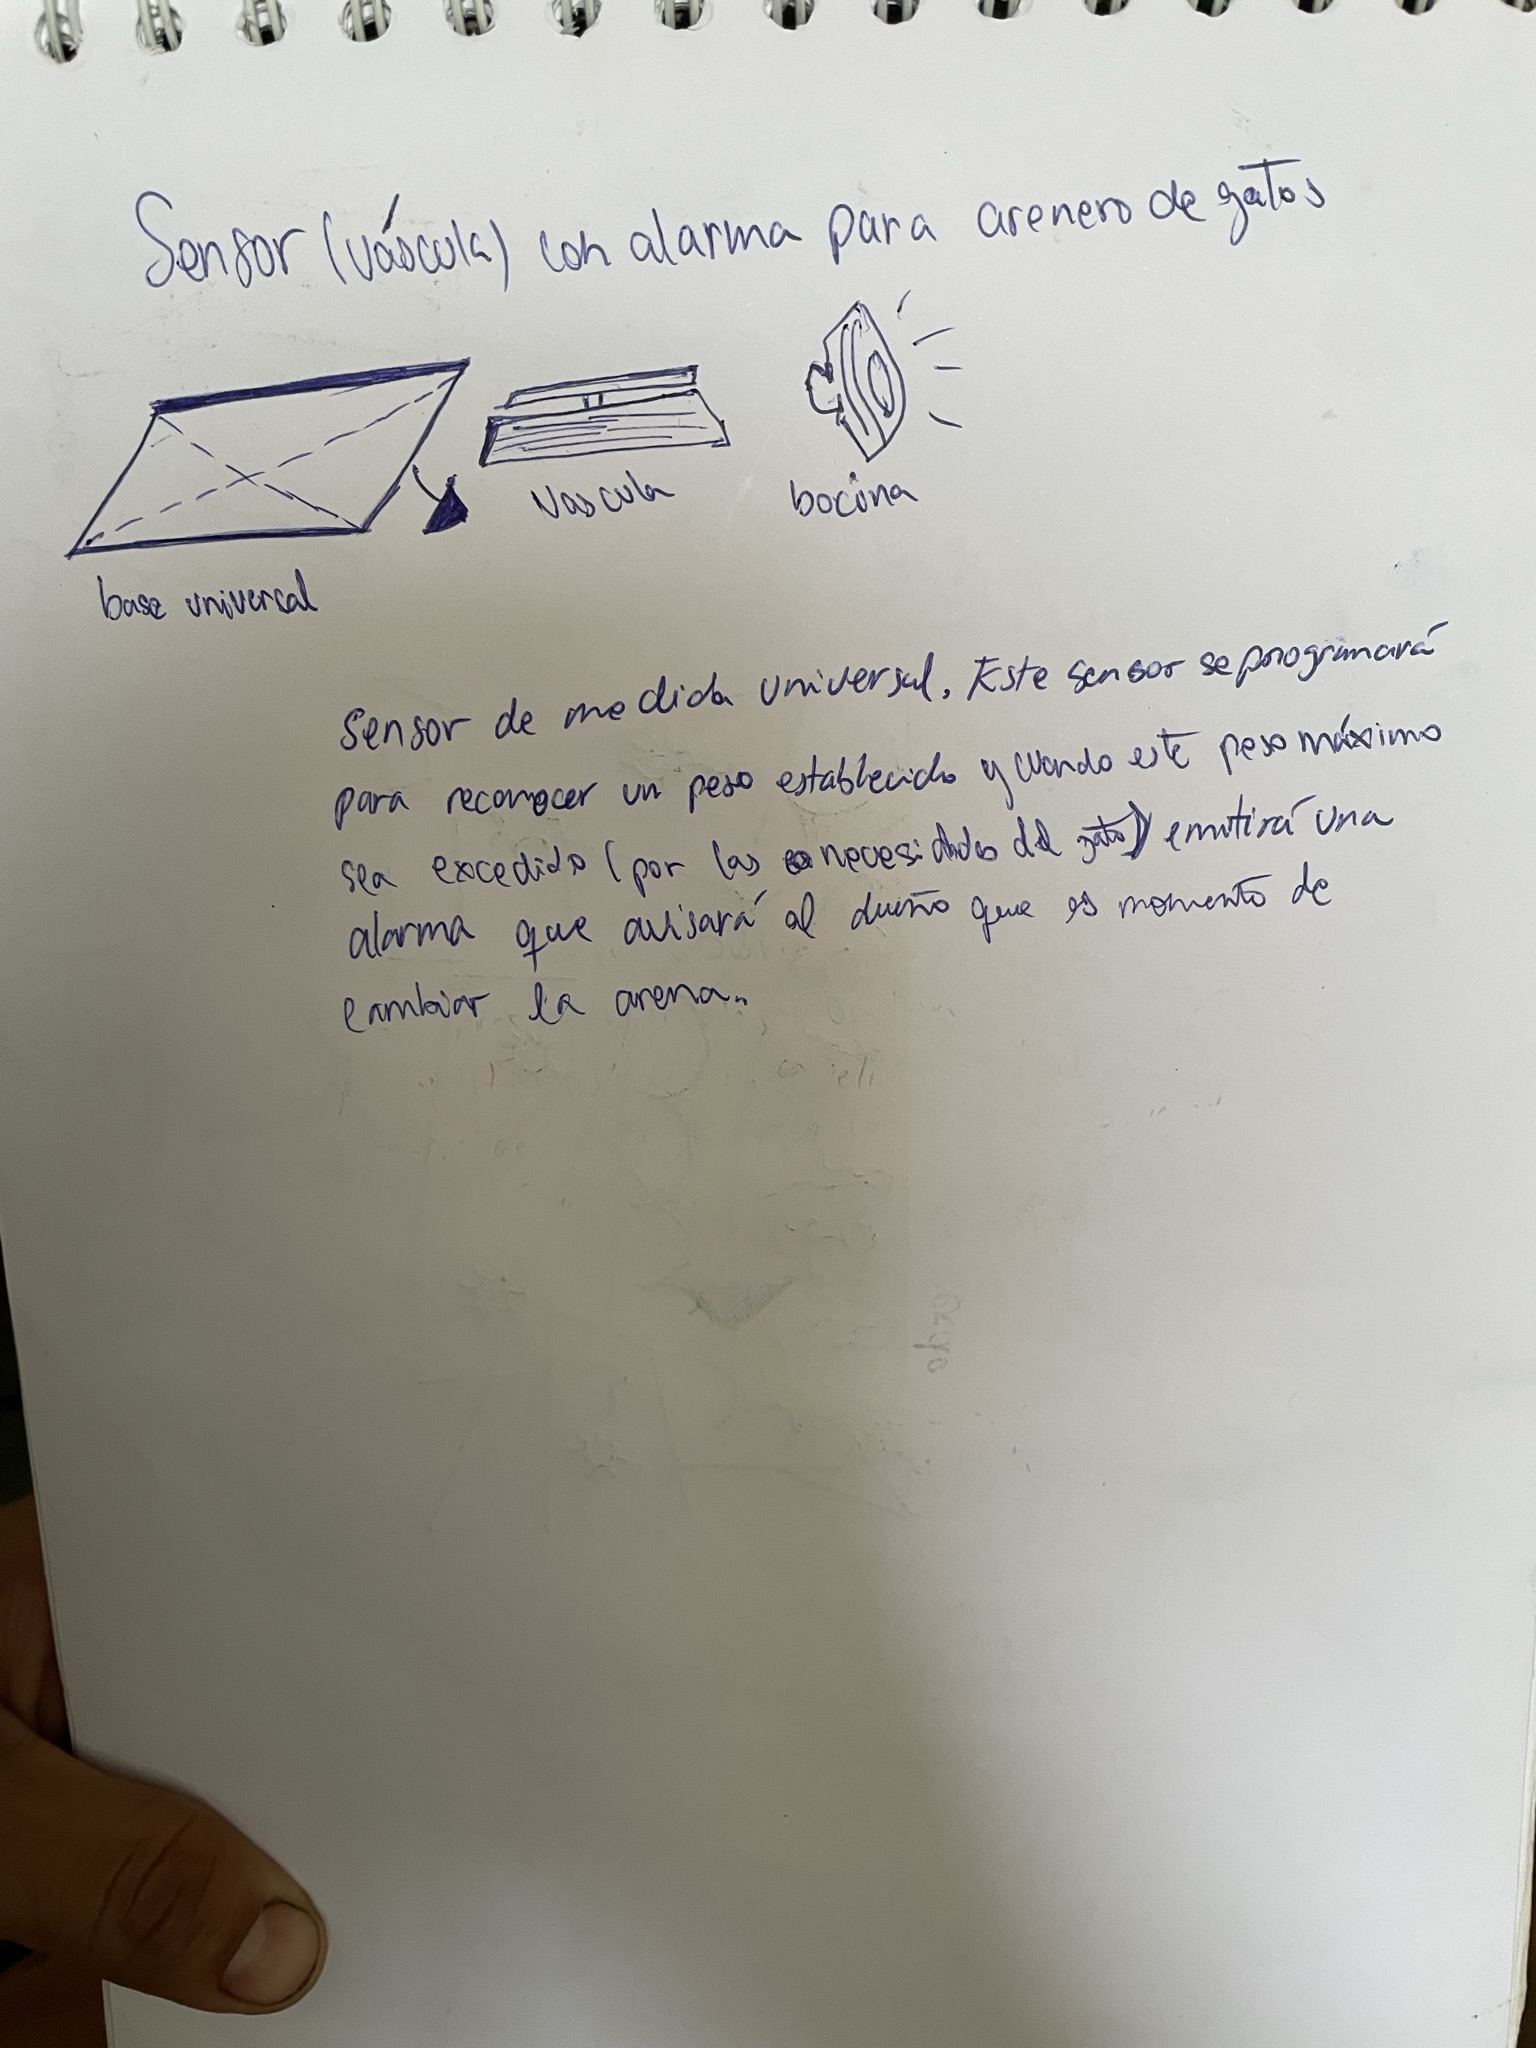 Sensor (váscula) con alarma para arenero de gatos
vascula
bocina
base universal
Sensor de medida universal. Este sensor se programará
para reconocer un peso establecido y cuando este peso máximo
sea excedido (por las necesidades del gato) emitirá una
alarma que avisará al dueño que es momento de
cambiar la arena.